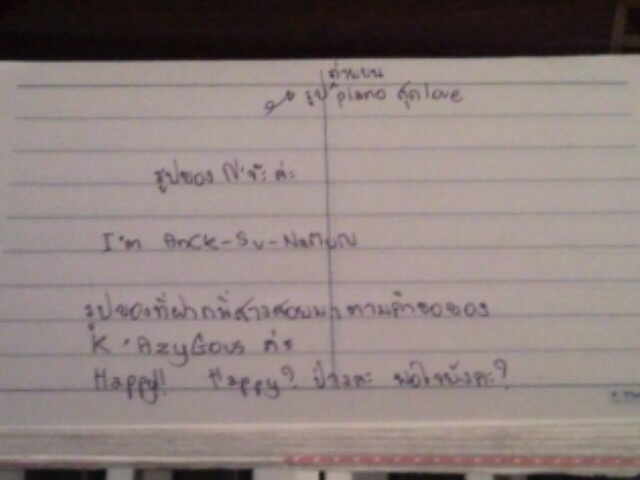 ด้านบน
รูป piano สุด love
รูปของ
I'm Anck-Su-Namun
รูปของที่ฝากพี่สาวสอยมา ตามคำขอของ
K'AzyGous ค่ะ
Happy!! Happy? ป่าวคะ พอใจยังคะ?